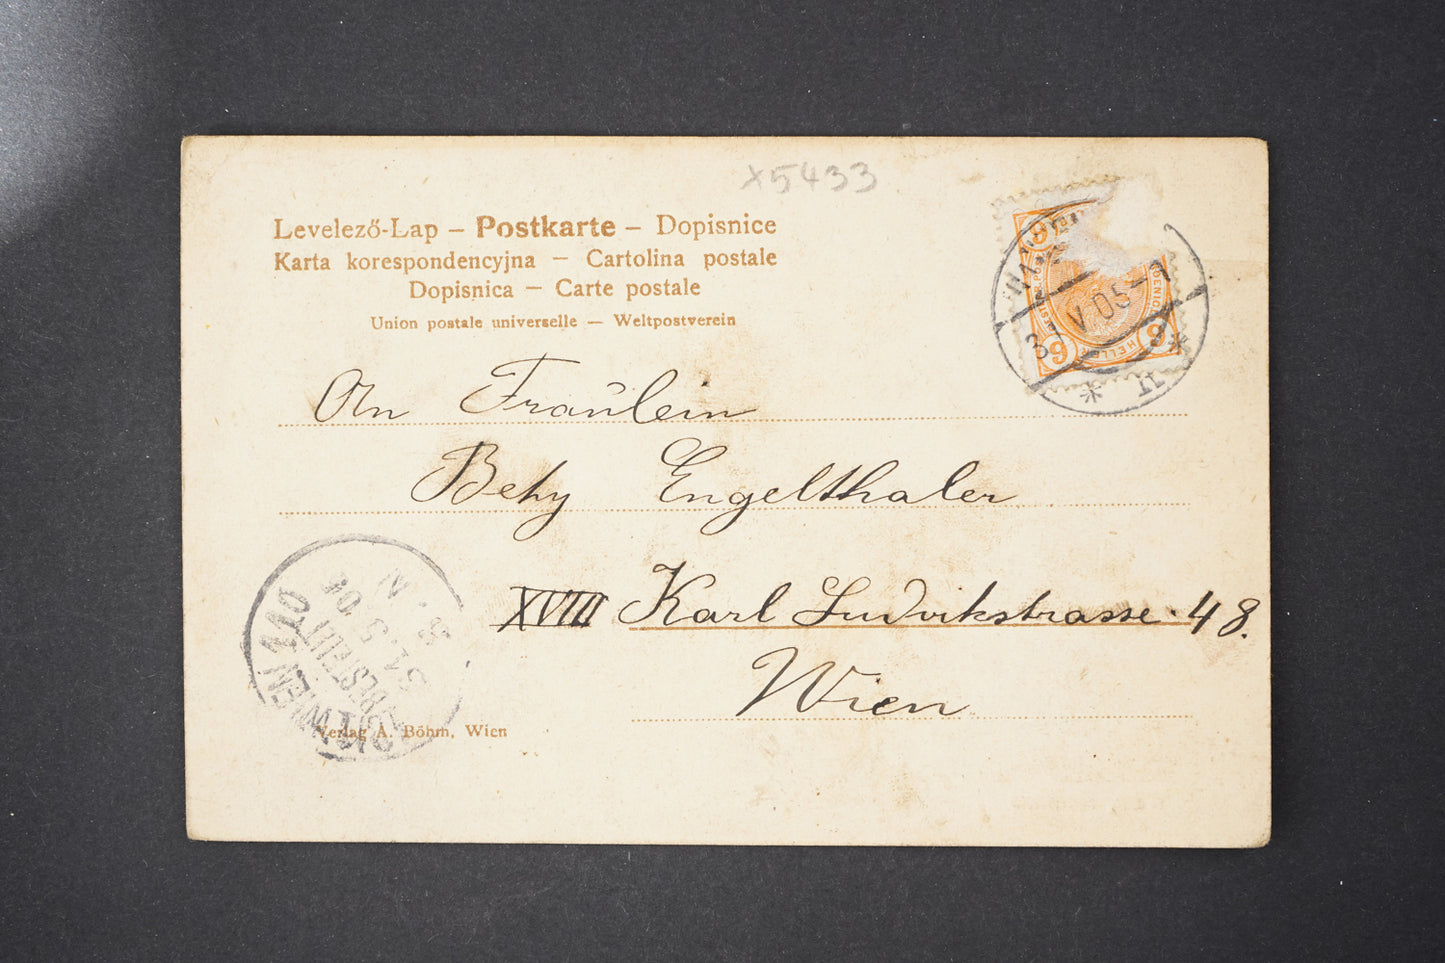 x5433
Levelező-Lap – Postkarte – Dopisnice
Karta korespondencyjna – Cartolina postale
Dopisnica – Carte postale
Union postale universelle — Weltpostverein
3/V 05-7
6 6
HELLER
An Fräulein
Bety Engelthaler
XVIII Karl Ludwikstrasse 48.
Wien
WIEN 110
BESTELLT
Verlag A. Böhm, Wien